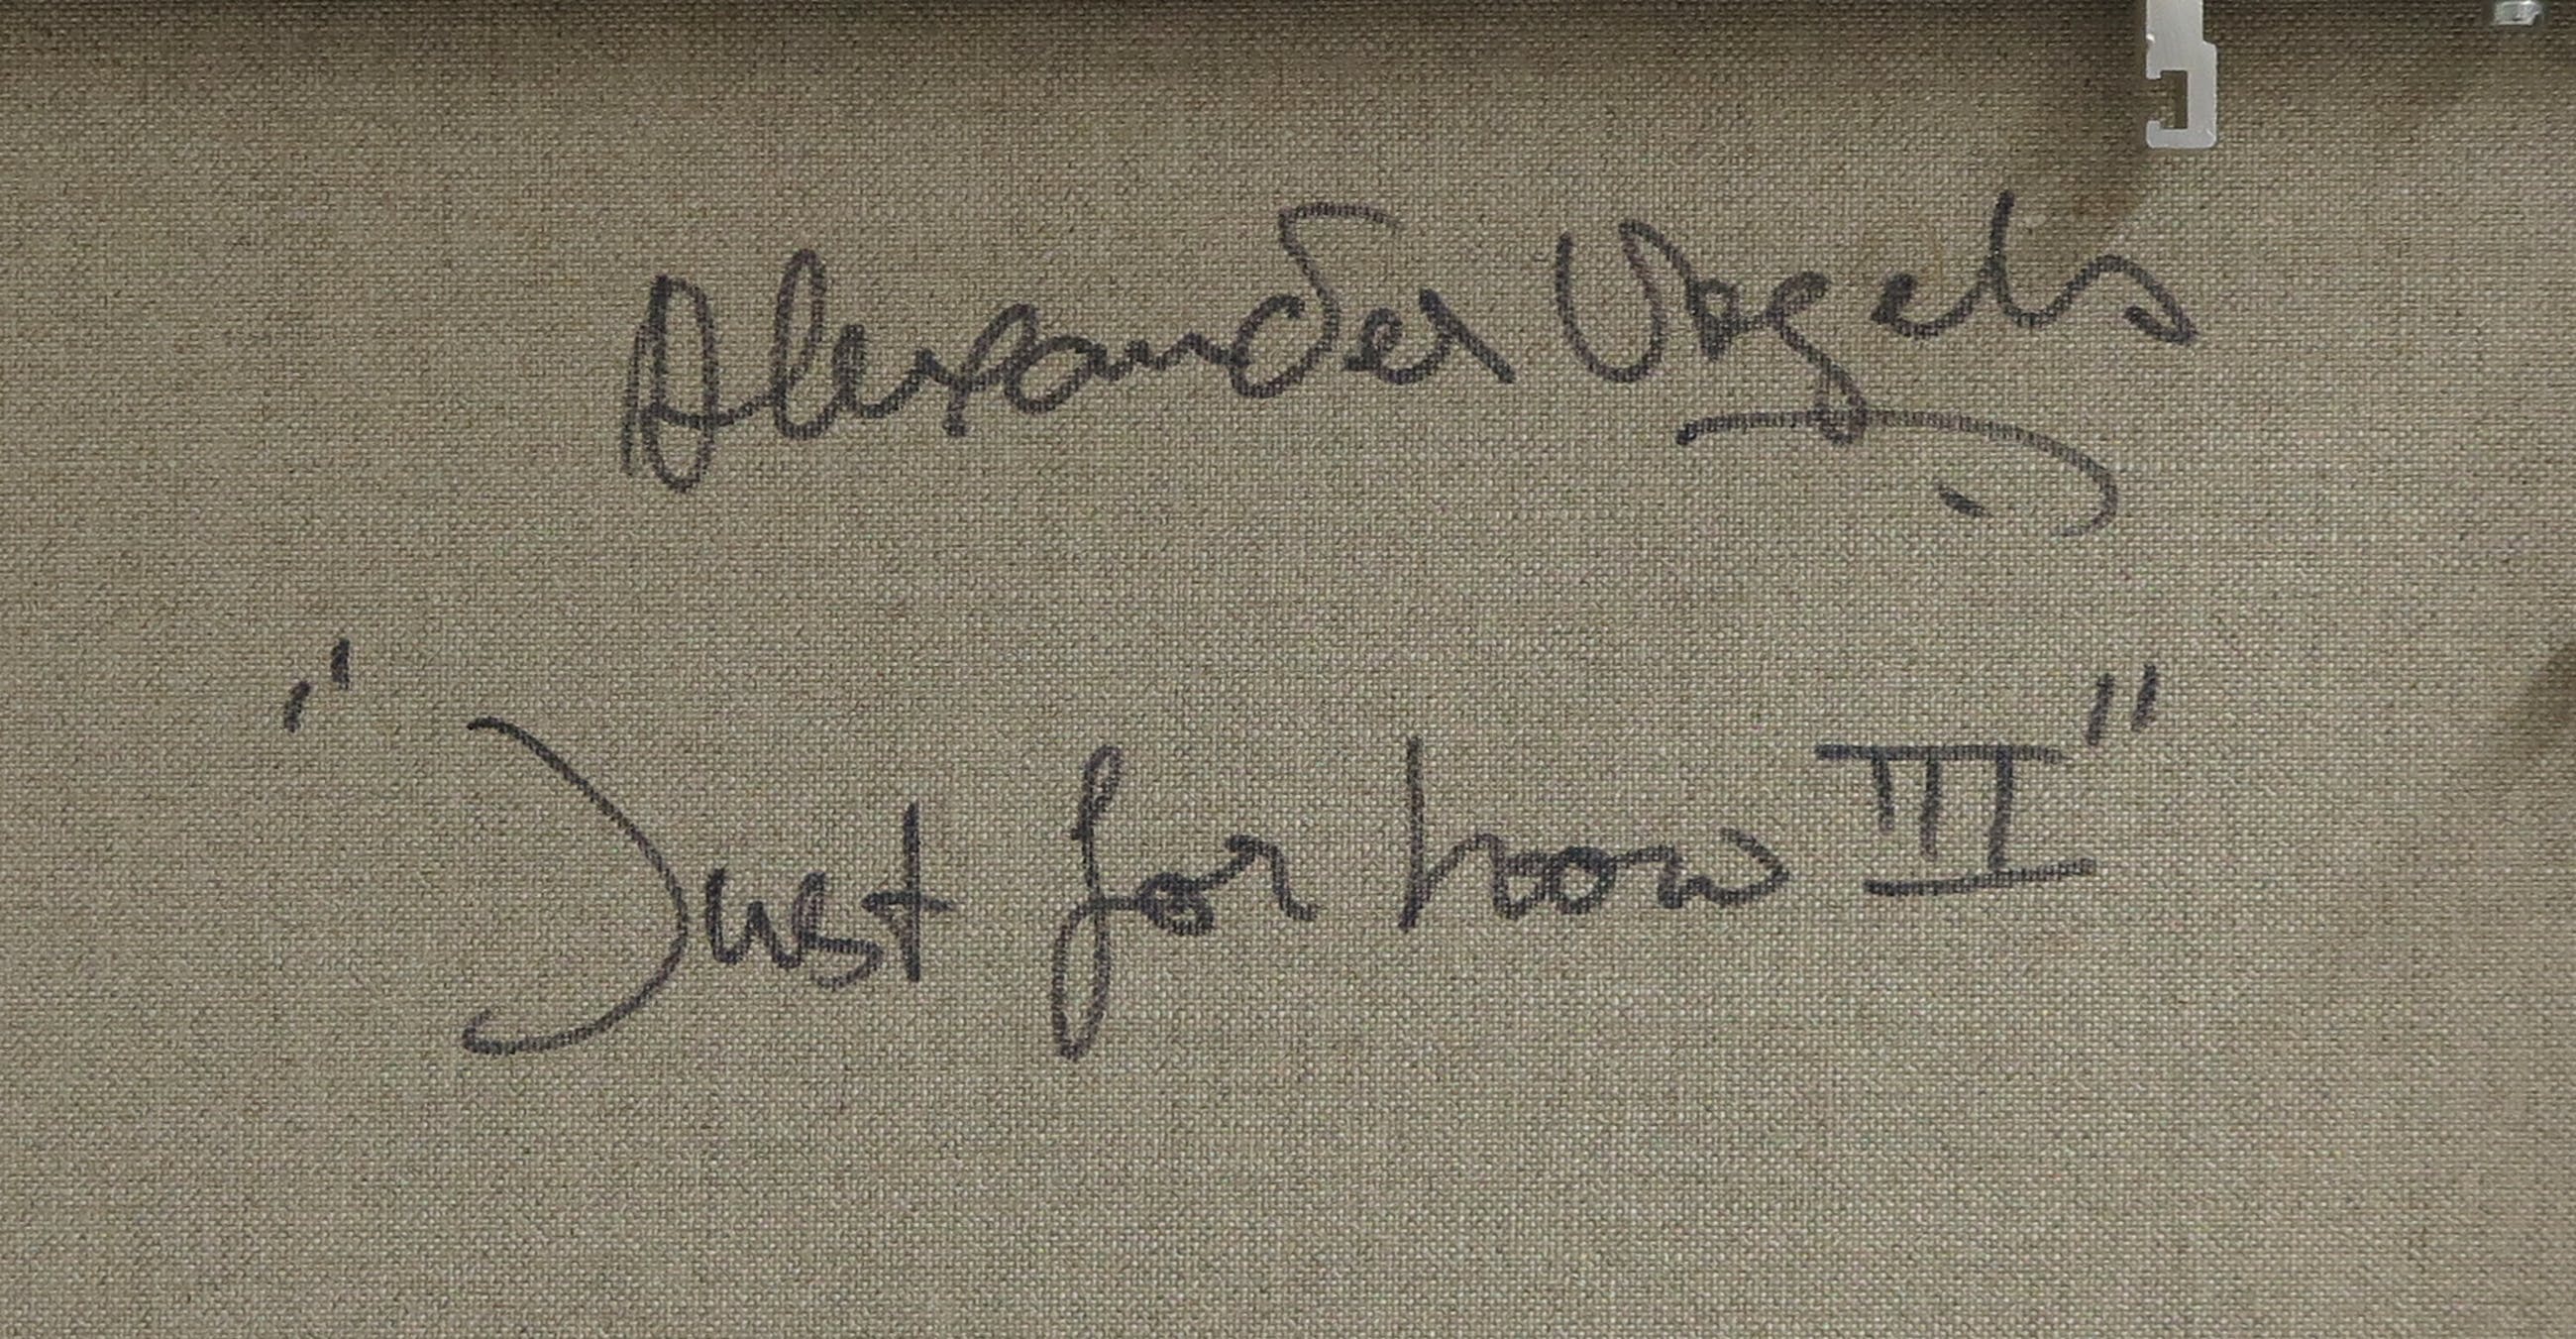 Alexander Vogels
"Just for now III"